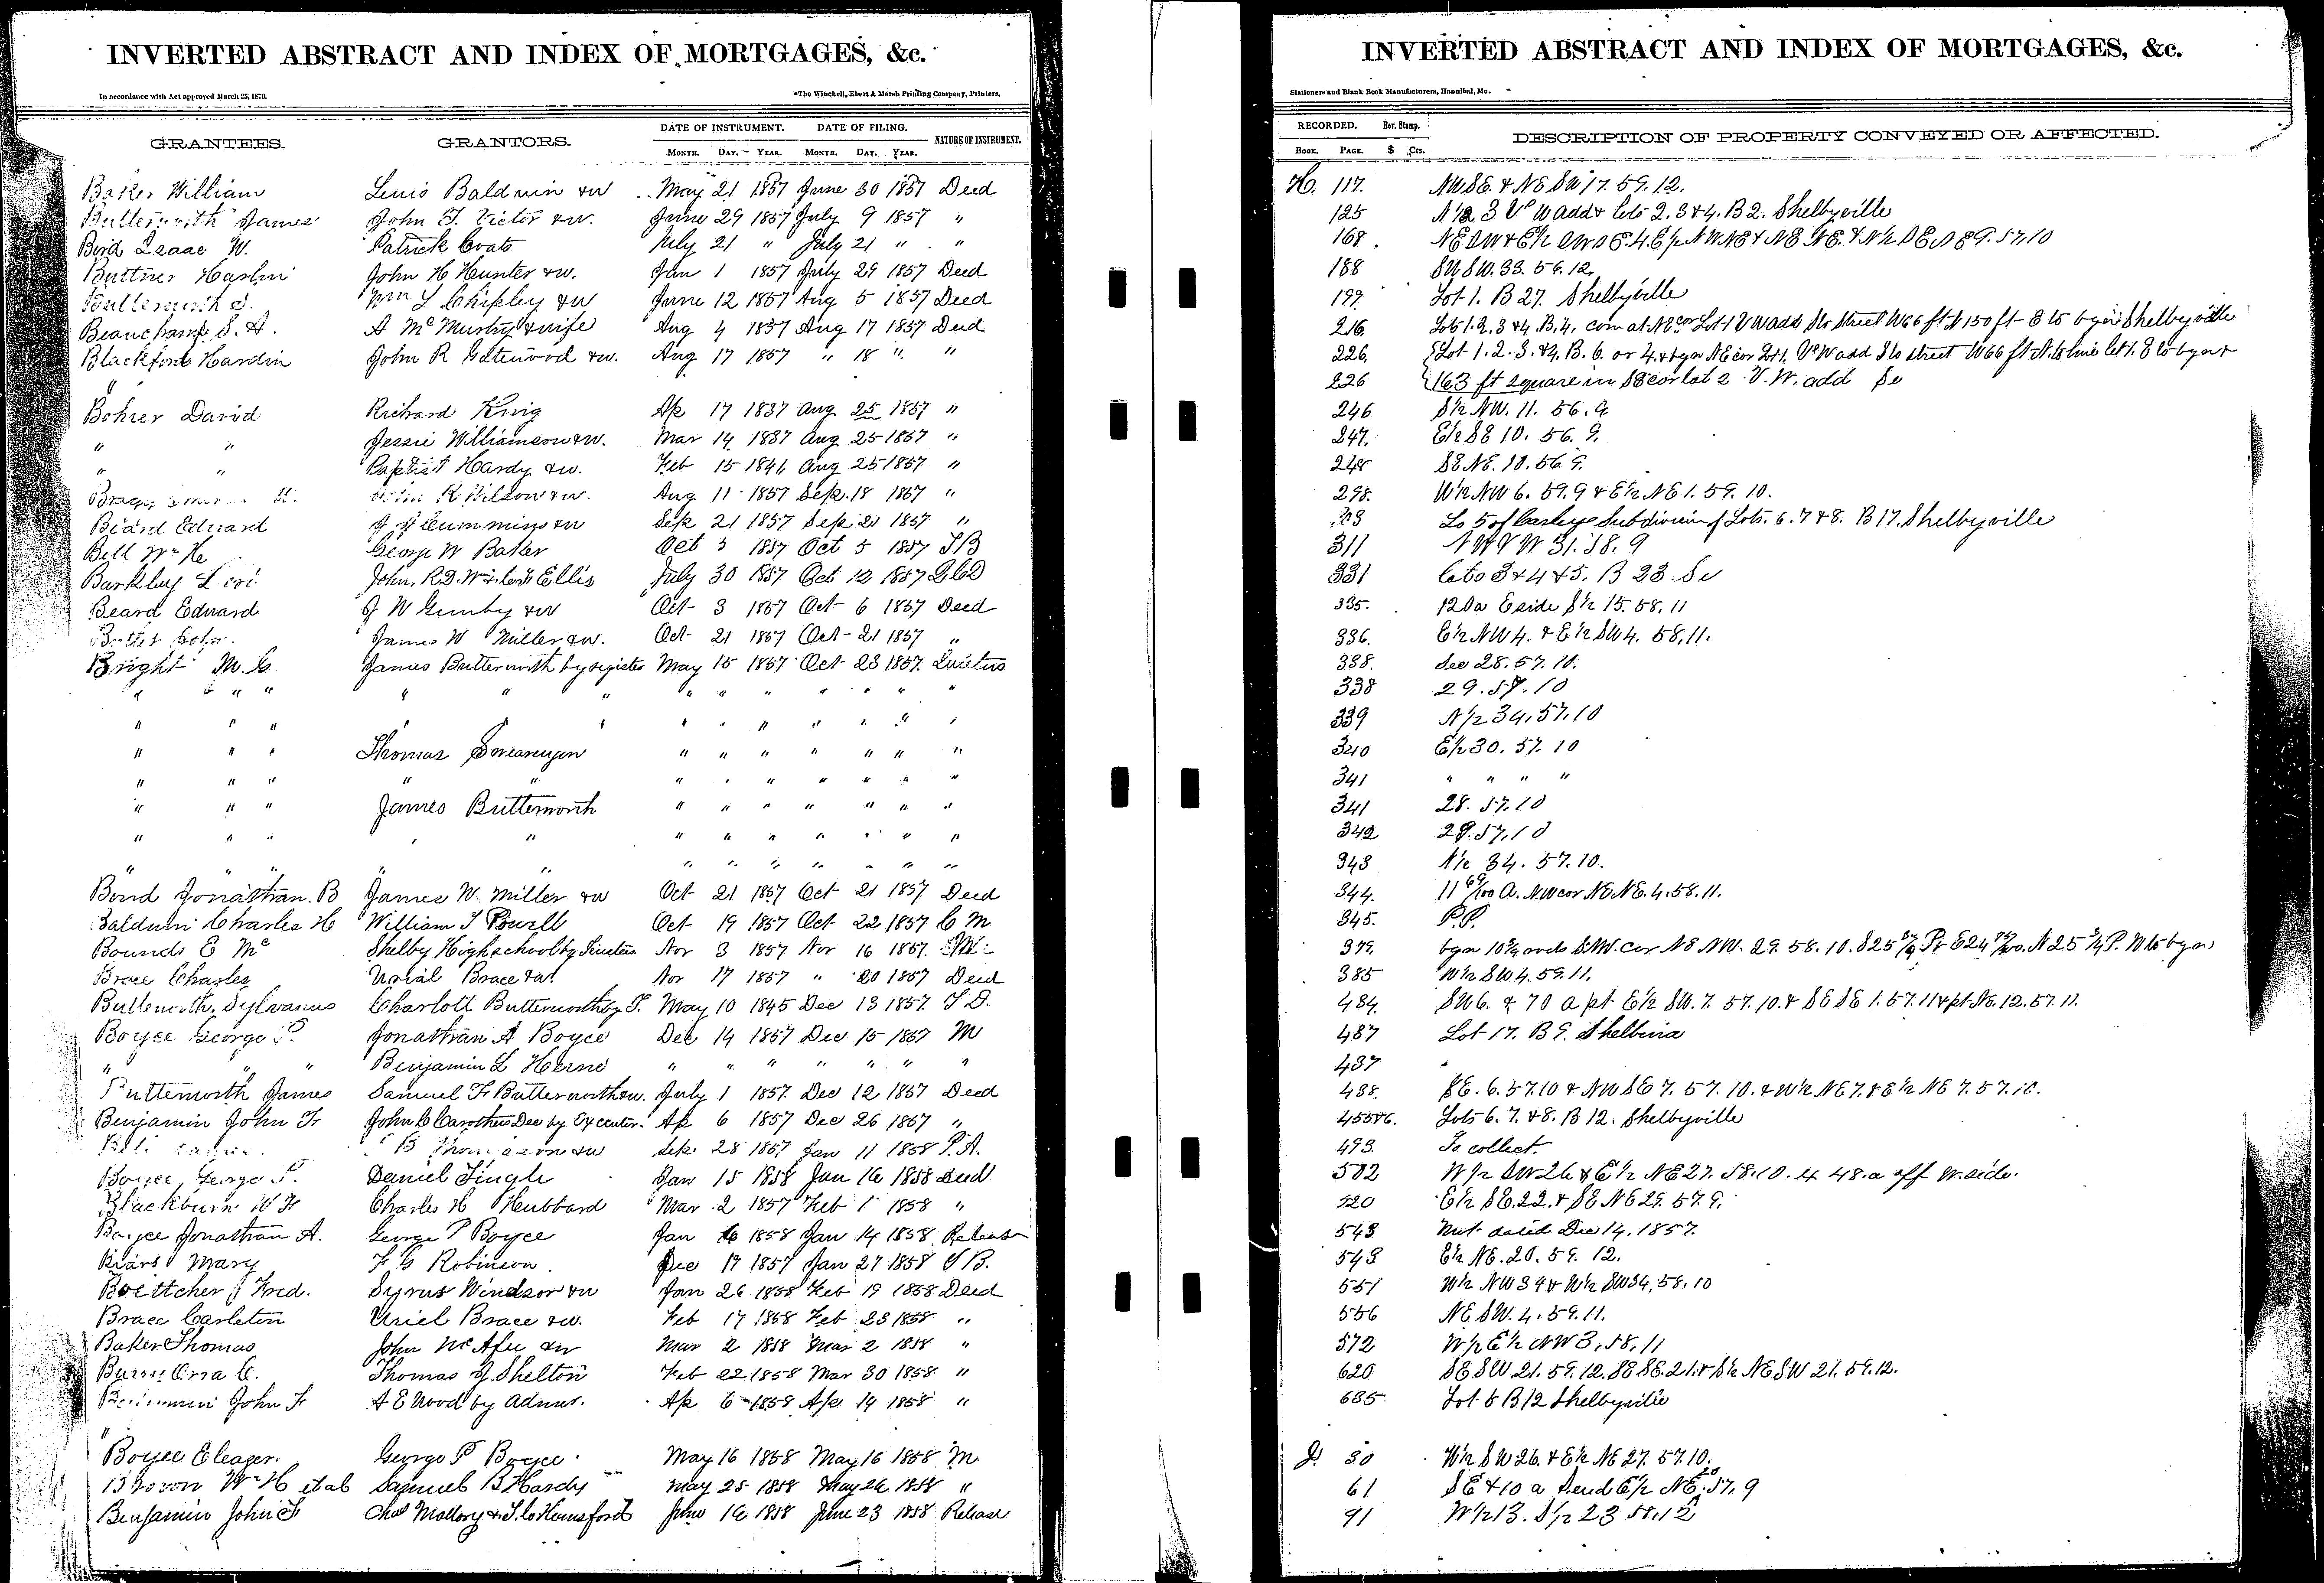 INVERTED ABSTRACT AND INDEX OF MORTGAGES, &c.
In accordance with Act approved March 25, 1870.
The Winchell, Ebert & Marsh Printing Company, Printers,
GRANTEES. GRANTORS. DATE OF INSTRUMENT. DATE OF FILING. NATURE OF INSTRUMENT.
MONTH. DAY. YEAR. MONTH. DAY. YEAR.
Baker William Lewis Baldwin & w May 21 1857 June 30 1857 Deed
Butterworth James John F. Victor & w. June 29 1857 July 9 1857 "
Bird Isaac W. Patrick Coats July 21 " July 21 " "
Buttner John H Hunter & w. Jan 1 1857 July 29 1857 Deed
Butterworth S. Wm L Chipley & w June 12 1857 Aug 5 1857 Deed
Beauchamp S. A. A McMurtry & wife Aug 4 1857 Aug 17 1857 Deed
Blackford Hardin John R Gatewood & w. Aug 17 1857 " 18 " "
"
Bohrer David Richard King Ap 17 1837 Aug. 25 1857 "
" " Jessie Williamson & w. Mar 14 1837 Aug 25 1857 "
" " Baptist Hardy & w. Feb 15 1846 Aug 25 1857 "
R Wilson & w. Aug 11 1857 Sep. 18 1857 "
Beard Edward Cummins & w Sep 21 1857 Sep 21 1857 "
Bell Wm He George W Baker Oct 5 1857 Oct 5 1857 T B
Barkley Levi John, R.D. Ellis July 30 1857 Oct 12 1857 Q C D
Beard Edward J W Gunby & w Oct 3 1857 Oct 6 1857 Deed
John James W Miller & w. Oct 21 1857 Oct 21 1857 "
Bright M. C James Butterworth by register May 15 1857 Oct 23 1857
" " " " " " " " " " " " "
" " " " " " " " " " " "
" " " Thomas " " " " " " "
" " " " " " " " " " " "
" " " James Butterworth " " " " " " "
" " " " " " " " " " " "
" " " " " " " " " " "
Bond Jonathan. B James W. Miller & w Oct 21 1857 Oct 21 1857 Deed
Baldwin Charles H William T Powell Oct 19 1857 Oct 22 1857 C M
Bounds E Mc Shelby Highschool by Nov 3 1857 Nov 16 1857. M
Brace Charles Urial Brace & w. Nov 17 1857 " 20 1857 Deed
Butterworth, Sylvanus Charlott Butterworth by T. May 10 1845 Dec 13 1857. T. D.
Boyce George P. Jonathan A Boyce Dec 14 1857 Dec 15 1857 M
" " " Benjamin L Herne " " " " " " "
Butterworth James Samuel Fr Butterworth & w. July 1 1857. Dec 12 1857 Deed
Benjamin John Fr John C Carothers Dec by Executor. Ap 6 1857 Dec 26 1857 "
B & w Sep. 28 1857 Jan 11 1858 P. A.
Boyce, George P. Daniel Tingle Jan 15 1858 Jan 16 1858 Deed
Blackburn W Fr Charles H Hubbard Mar. 2 1857 Feb 1 1858 "
Boyce Jonathan A. George P Boyce Jan 1858 Jan 14 1858 Release
Mary F G Robinson. Dec 17 1857 Jan 27 1858 T B.
Boettcher J Fred. Syrus Windsor & w Jan 26 1858 Feb 19 1858 Deed
Brace Carleton Uriel Brace & w. Feb 17 1858 Feb 23 1858 "
Baker Thomas John McAfee & w Mar 2 1858 Mar 2 1858 "
Orra C. Thomas J. Shelton Feb 22 1858 Mar 30 1858. "
Benjamin John Fr A E Wood by Admr. Ap 6 1858 Ap 19 1858 "
"
Boyce Eleazer. George P Boyce. May 16 1858 May 16 1858 M.
Brown Wm H et al Samuel B Hardy May 25 1858 May 26 1858 "
Benjamin John F Chas Mallory & June 16 1858 June 23 1858 Release
INVERTED ABSTRACT AND INDEX OF MORTGAGES, &c.
Stationers and Blank Book Manufacturers, Hannibal, Mo.
RECORDED. Rev. Stamp. DESCRIPTION OF PROPERTY CONVEYED OR AFFECTED.
BOOK. PAGE. $ Cts.
H. 117. NW SE. & NE SW 17. 59. 12.
125 3 V W add & lots 2. 3 & 4. B 2. Shelbyville
168.
188 SW SW. 33. 56. 12.
199. Lot 1. B 27. Shelbyville
216 Lots 1. 2. 3 & 4. B. 4. com at NE cor Lot 1 V W add S to street W 66 ft N 150 ft E to bgn Shelbyville
226. Lot 1. 2. 3. & 4. B. 6. or 4. & bgn NE cor Lot 1. V W add S to street W 66 ft N. to line lot 1. E to bgn &
226 163 ft square in SE cor lot 2 V. W. add
246 S½ NW. 11. 56. 9.
247. E½ SE 10. 56. 9.
248 SE NE. 10. 56 9.
298. W½ NW 6. 59. 9 & E½ NE 1. 59. 10.
Lo 5 of Subdivision of Lots. 6. 7 & 8. B 17. Shelbyville
311 31. 58. 9
331 Lots 3 & 4 & 5. B 23.
335. 120a E side S½ 15. 58. 11
336. E½ NW 4. & E½ SW 4. 58. 11.
338. Sec 28. 57. 10.
338 29. 57. 10
339 N½ 34. 57. 10
340 E½ 30. 57. 10
341 " " " "
341 28. 57. 10
342 29. 57. 10
343 N½ 34. 57. 10.
344. 11 69/100 A. NW cor NE NE. 4. 58. 11.
345. P.P.
379. bgn 10¾ rods S.W. cor NE NW. 29. 58. 10.
385 W½ SW 4. 59. 11.
434. SW 6. & 70 a pt E½ SW. 7. 57. 10. & SE SE 1. 57. 11 & pt NE. 12. 57. 11.
437 Lot 17. B 9. Shelbina
437 "
438. SE. 6. 57. 10 & NW SE 7. 57. 10. & W½ NE 7. & E½ NE 7. 57. 10.
455&6. Lots 6. 7. & 8. B 12. Shelbyville
493. To collect.
502 W½ SW 26 & E½ NE 27. 58. 10. ex 48. a off W. side.
520 E½ SE. 22. & SE NE 29. 57. 9.
543 Mort. dated Dec 14. 1857.
543 E½ NE. 20. 59. 12.
551 W½ NW 34 & W½ SW 34. 58. 10
556 NE SW. 4. 59. 11.
572 W½ E½ NW 3. 58. 11
620 SE SW 21. 59. 12. SE SE. 21. & S½ NE SW 21. 59. 12.
635. Lot 5 B 12 Shelbyville
J. 30 W½ SW 26. & E½ NE 27. 57. 10.
61 SE & 10 a S end E½ NE. 57. 9
91 W½ 13. S½ 23 58. 12